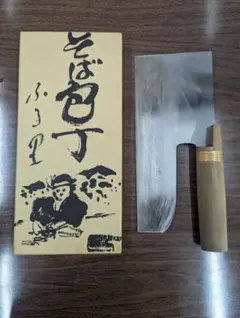 そば包丁
ふる里